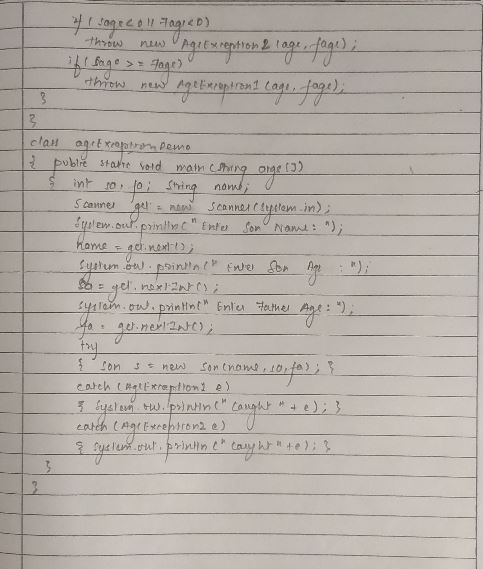 if ( sage < 0 || fage < 0)
throw new AgeException2 (age, fage);
if ( sage >= fage)
throw new AgeException1 (age, fage);
}
}
class ageExceptionDemo
{ public static void main (String args [])
{ int so, fa; String name;
Scanner get = new Scanner (System.in);
System.out.println (" Enter Son Name : ");
Name = get.next();
System.out.println (" Enter Son Age : ");
so = get.nextInt();
System.out.println (" Enter Father Age : ");
fa = get.nextInt();
try
{ Son s = new Son (name, so, fa); }
catch (AgeException1 e)
{ System.out.println (" Caught " + e); }
catch (AgeException2 e)
{ System.out.println (" Caught " + e); }
}
}